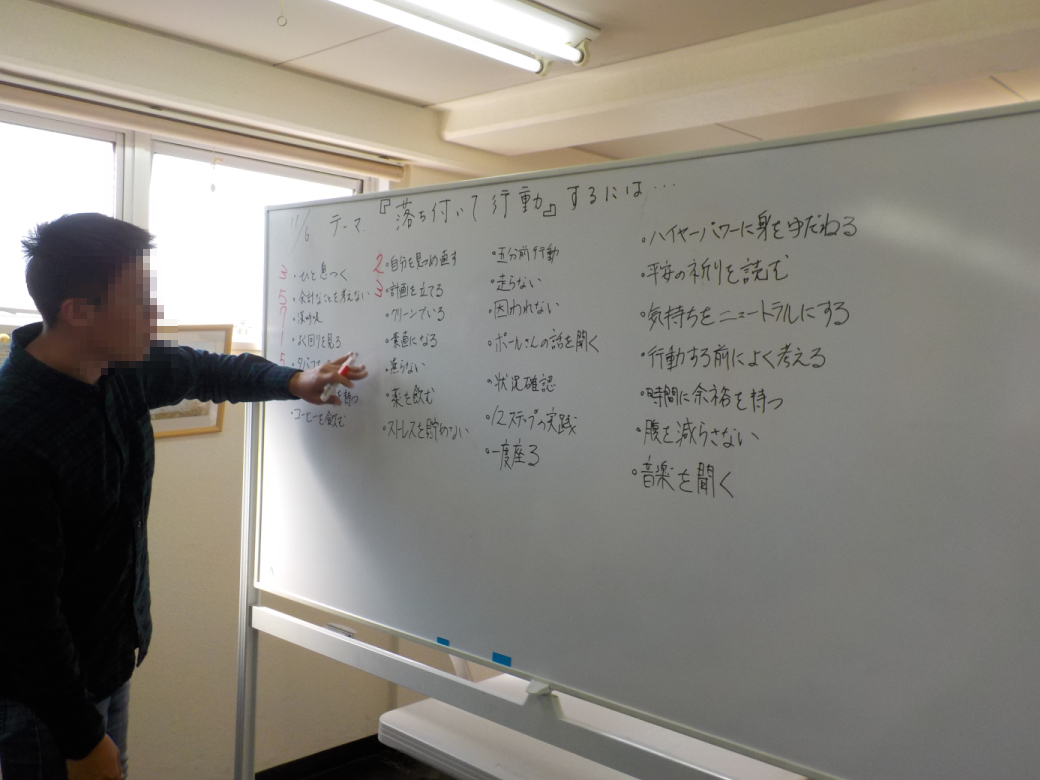 11/6 テーマ 『落ち付いて行動』するには…
3 ・ひと息つく
5 ・余計なことを考えない
7 ・深呼吸
1 ・よく回りを見る
5 ・タバコ
持つ
・コーヒーを飲む
2 ・自分を見つめ直す
3 ・計画を立てる
・クリーンでいる
・素直になる
・焦らない
・薬を飲む
・ストレスを貯めない
・五分前行動
・走らない
・囚われない
・ポールさんの話を聞く
・状況確認
・12ステップの実践
・一度座る
・ハイヤーパワーに身をゆだねる
・平安の祈りを読む
・気持ちをニュートラルにする
・行動する前によく考える
・時間に余裕を持つ
・腹を減らさない
・音楽を聞く